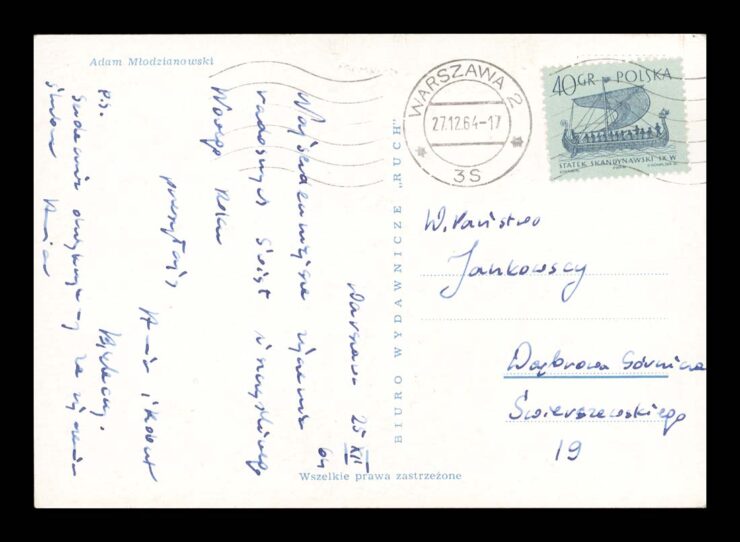 Adam Młodzianowski
WARSZAWA 2
27.12.64-17
3S
40 GR POLSKA
STATEK SKANDYNAWSKI IX W
Warszawa 25 XII 64
Najserdeczniejsze życzenia
radosnych Świąt i szczęśliwego
Nowego Roku
przesyłają
Ania i
P.S.
Serdecznie dziękujemy za życzenia
Ania
BIURO WYDAWNICZE „RUCH"
W. Państwo
Jankowscy
Dąbrowa Górnicza
Świerszewskiego
19
Wszelkie prawa zastrzeżone